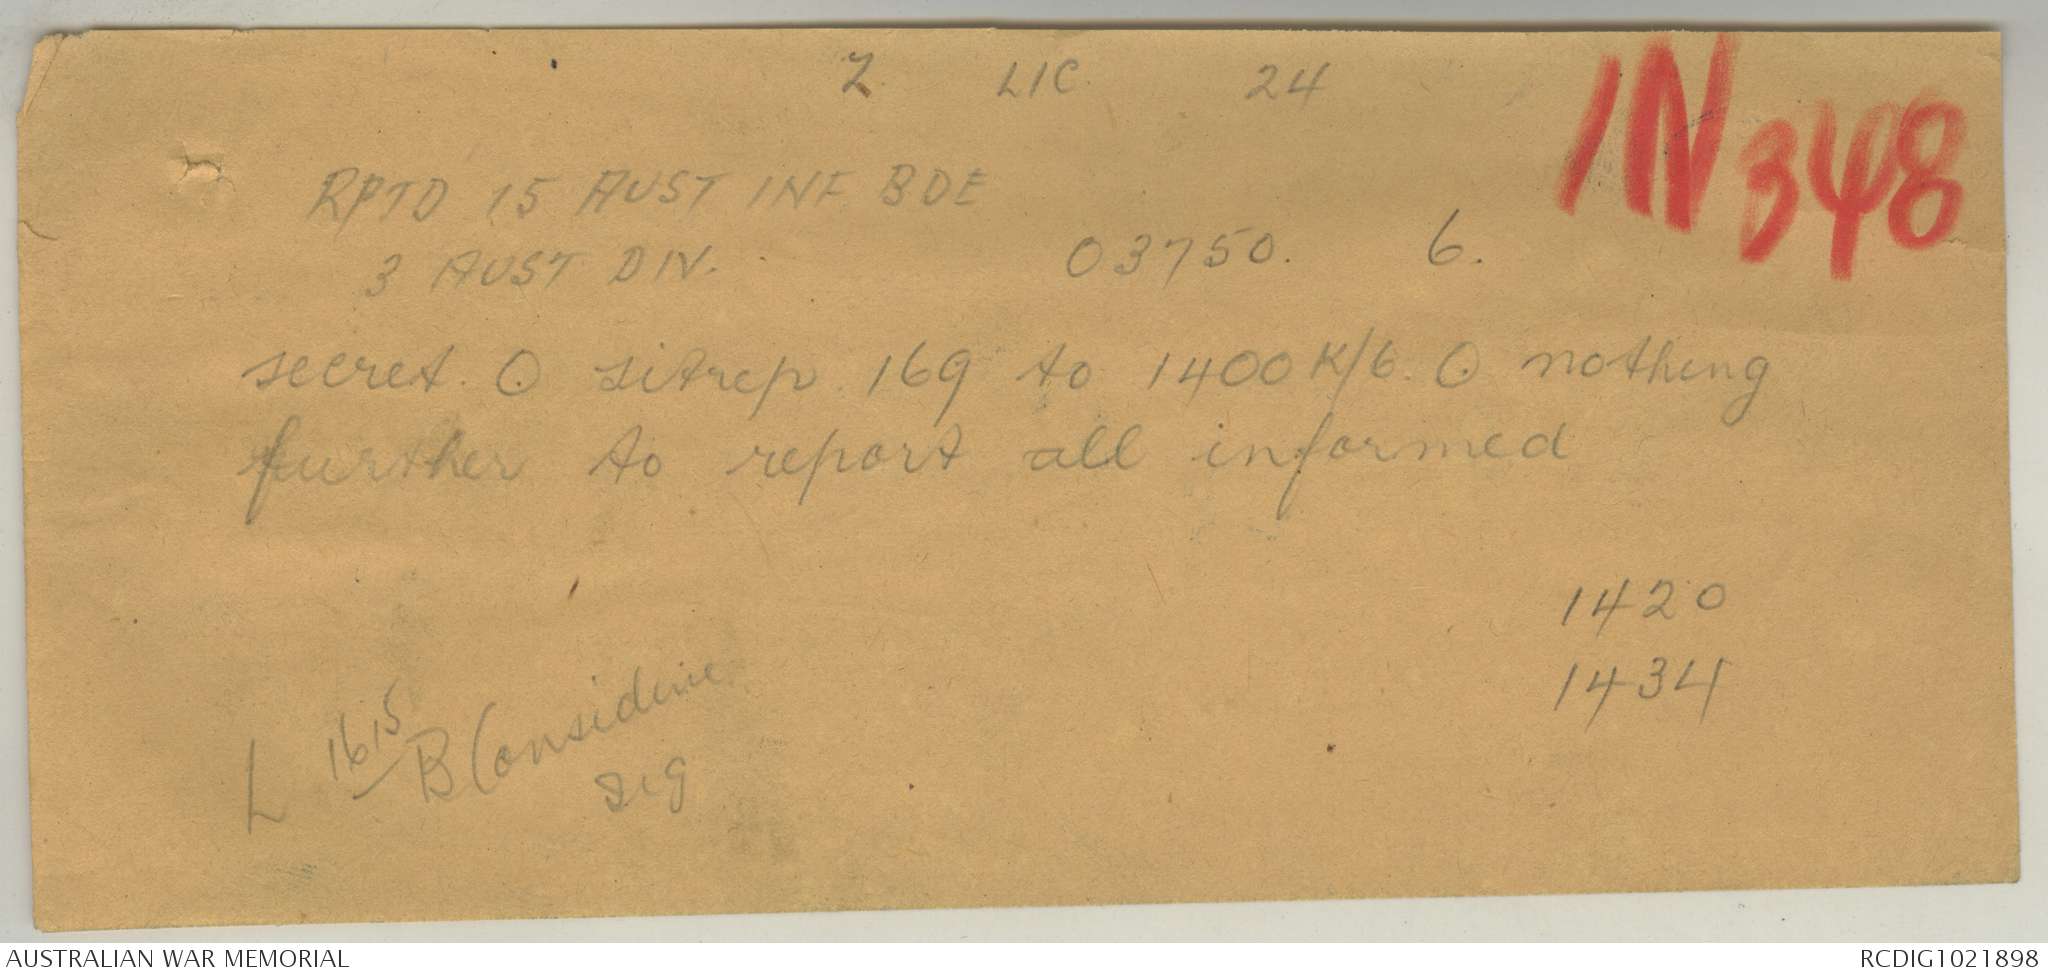 Z. LIC. 24
IN 348
RPTD 15 AUST INF BDE
3 AUST DIV. 03750. 6.
secret. O sitrep 169 to 1400 K/6. O nothing
further to report all informed
1420
1434
L 1615 B Considine
sig
AUSTRALIAN WAR MEMORIAL RCDIG1021898